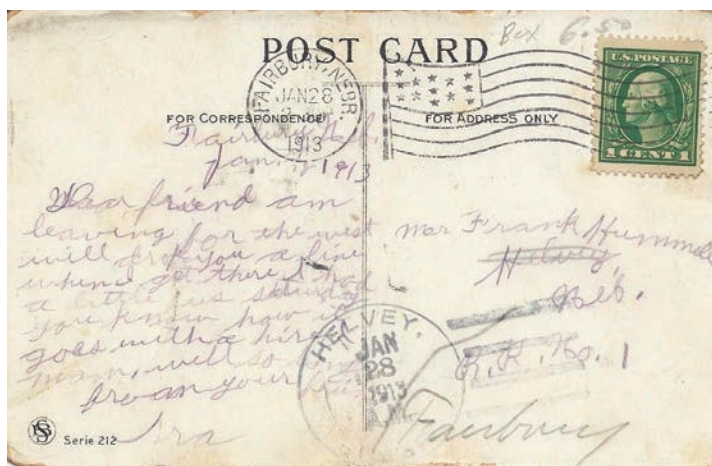 Box 6.50
POST CARD
FAIRBURY, NEBR.
JAN 28
1913
U.S. POSTAGE
1 CENT 1
FOR CORRESPONDENCE
FOR ADDRESS ONLY
Fairbury Neb.
Jan. 1913
Dear friend am
leaving for the west
will drop you a line
when I get there I had
a little us
you know how it
goes with a hired
man, well so
from your
Ira
Mr Frank Hummel
Helvey,
Neb.
R.R. No. 1
Fairbury
HELVEY,
JAN
28
1913
A.M.
Serie 212